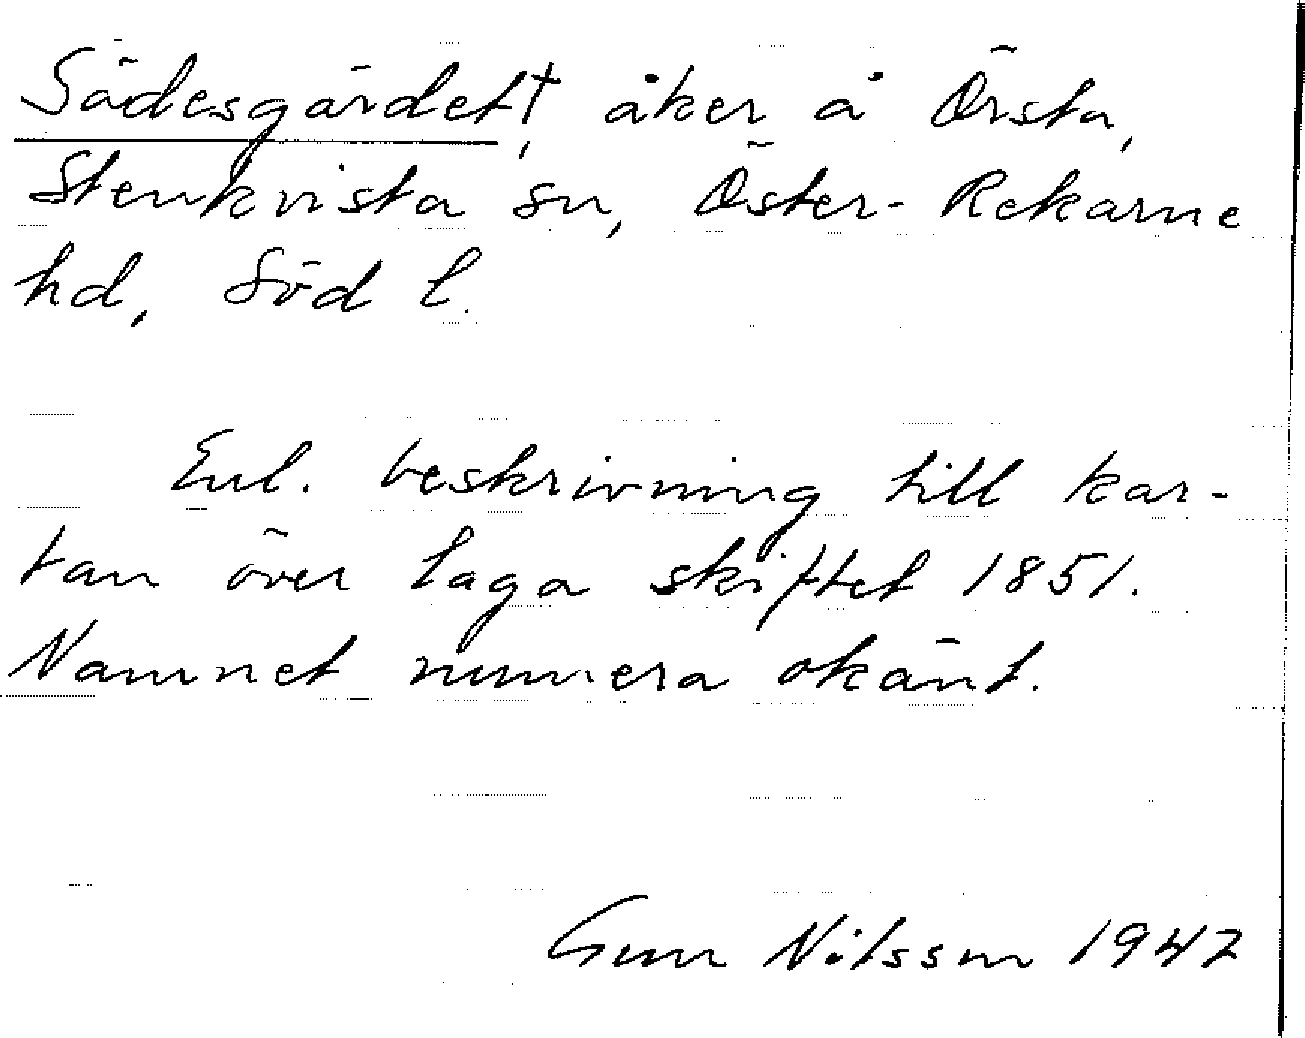 Sädesgärdet†, åker å Örsta,
Stenkvista sn, Öster-Rekarne
hd, Söd l.
Enl. beskrivning till kar-
tan över laga skiftet 1851.
Namnet numera okänt.
Gun Nilsson 1942